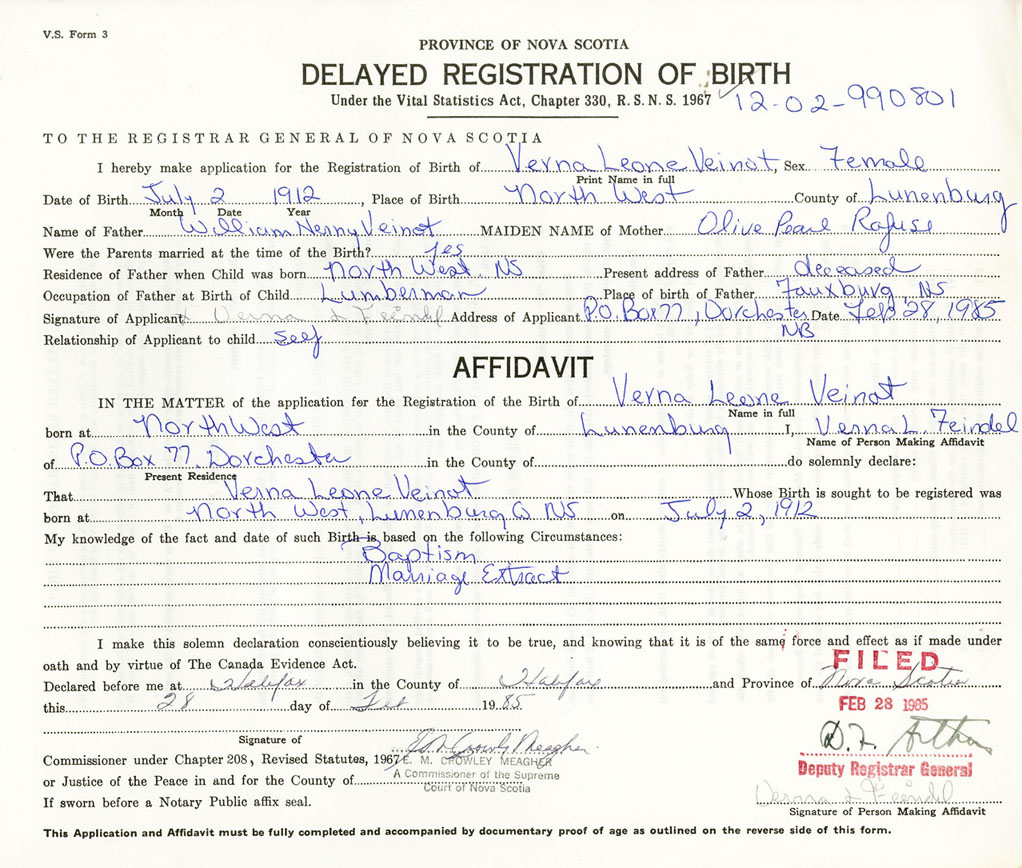 V.S. Form 3
PROVINCE OF NOVA SCOTIA
DELAYED REGISTRATION OF BIRTH
Under the Vital Statistics Act, Chapter 330, R.S.N.S. 1967 12-02-990801
TO THE REGISTRAR GENERAL OF NOVA SCOTIA
I hereby make application for the Registration of Birth of Verna Leone Veinot, Sex Female
Print Name in full
Date of Birth July 2 1912, Place of Birth North West County of Lunenburg
Month Date Year
Name of Father William Henry Veinot MAIDEN NAME of Mother Olive Pearl Rafuse
Were the Parents married at the time of the Birth? Yes
Residence of Father when Child was born North West, NS Present address of Father deceased
Occupation of Father at Birth of Child Lumberman Place of birth of Father Fauxburg NS
Signature of Applicant Verna L Feindel Address of Applicant P.O. Box 77, Dorchester Date Feb 28, 1985
NB
Relationship of Applicant to child Self
AFFIDAVIT
IN THE MATTER of the application for the Registration of the Birth of Verna Leone Veinot
Name in full
born at North West in the County of Lunenburg I, Verna L. Feindel
Name of Person Making Affidavit
of P.O. Box 77, Dorchester in the County of do solemnly declare:
Present Residence
That Verna Leone Veinot Whose Birth is sought to be registered was
born at North West, Lunenburg Co NS on July 2, 1912
My knowledge of the fact and date of such Birth is based on the following Circumstances:
Baptism
Marriage Extract
I make this solemn declaration conscientiously believing it to be true, and knowing that it is of the same force and effect as if made under
oath and by virtue of The Canada Evidence Act.
FILED
Declared before me at Halifax in the County of Halifax and Province of Nova Scotia
this 28 day of Feb 1985
FEB 28 1985
Signature of
Commissioner under Chapter 208, Revised Statutes, 1967 E. M. CROWLEY MEAGHER
A Commissioner of the Supreme
Court of Nova Scotia
or Justice of the Peace in and for the County of
Deputy Registrar General
If sworn before a Notary Public affix seal.
Verna L Feindel
Signature of Person Making Affidavit
This Application and Affidavit must be fully completed and accompanied by documentary proof of age as outlined on the reverse side of this form.